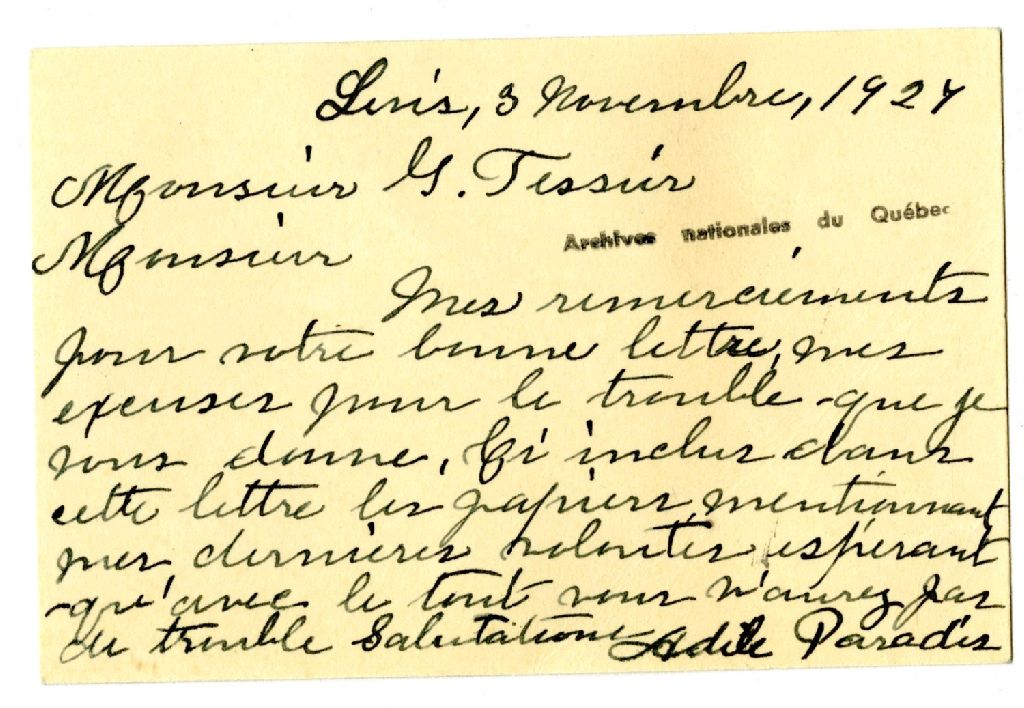 Levis, 3 Novembre, 1927
Monsieur G. Tessier
Archives nationales du Québec
Monsieur
Mes remerciements
pour votre bonne lettre, mes
excuses pour le trouble que je
vous donne, Ci inclus dans
cette lettre les papiers, mentionnant
mes dernières volontés, espérant
qu'avec le tout vous n'aurez pas
de trouble Salutations Adèle Paradis